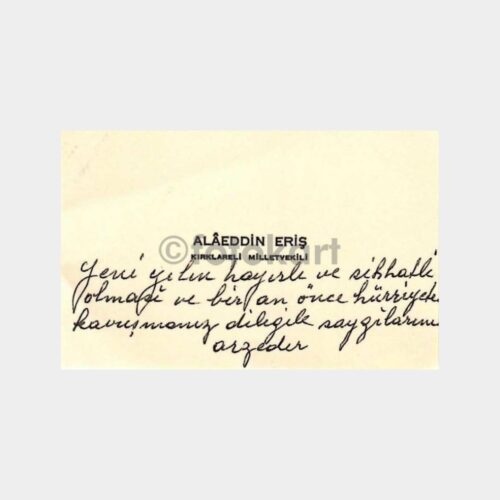 ©fotokart
ALÂEDDİN ERİŞ
KIRKLARELİ MİLLETVEKİLİ
Yeni yılın hayırlı ve sıhhatli
olması ve bir an önce hürriyete
kavuşmanız dileğile saygılarımı
arzeder